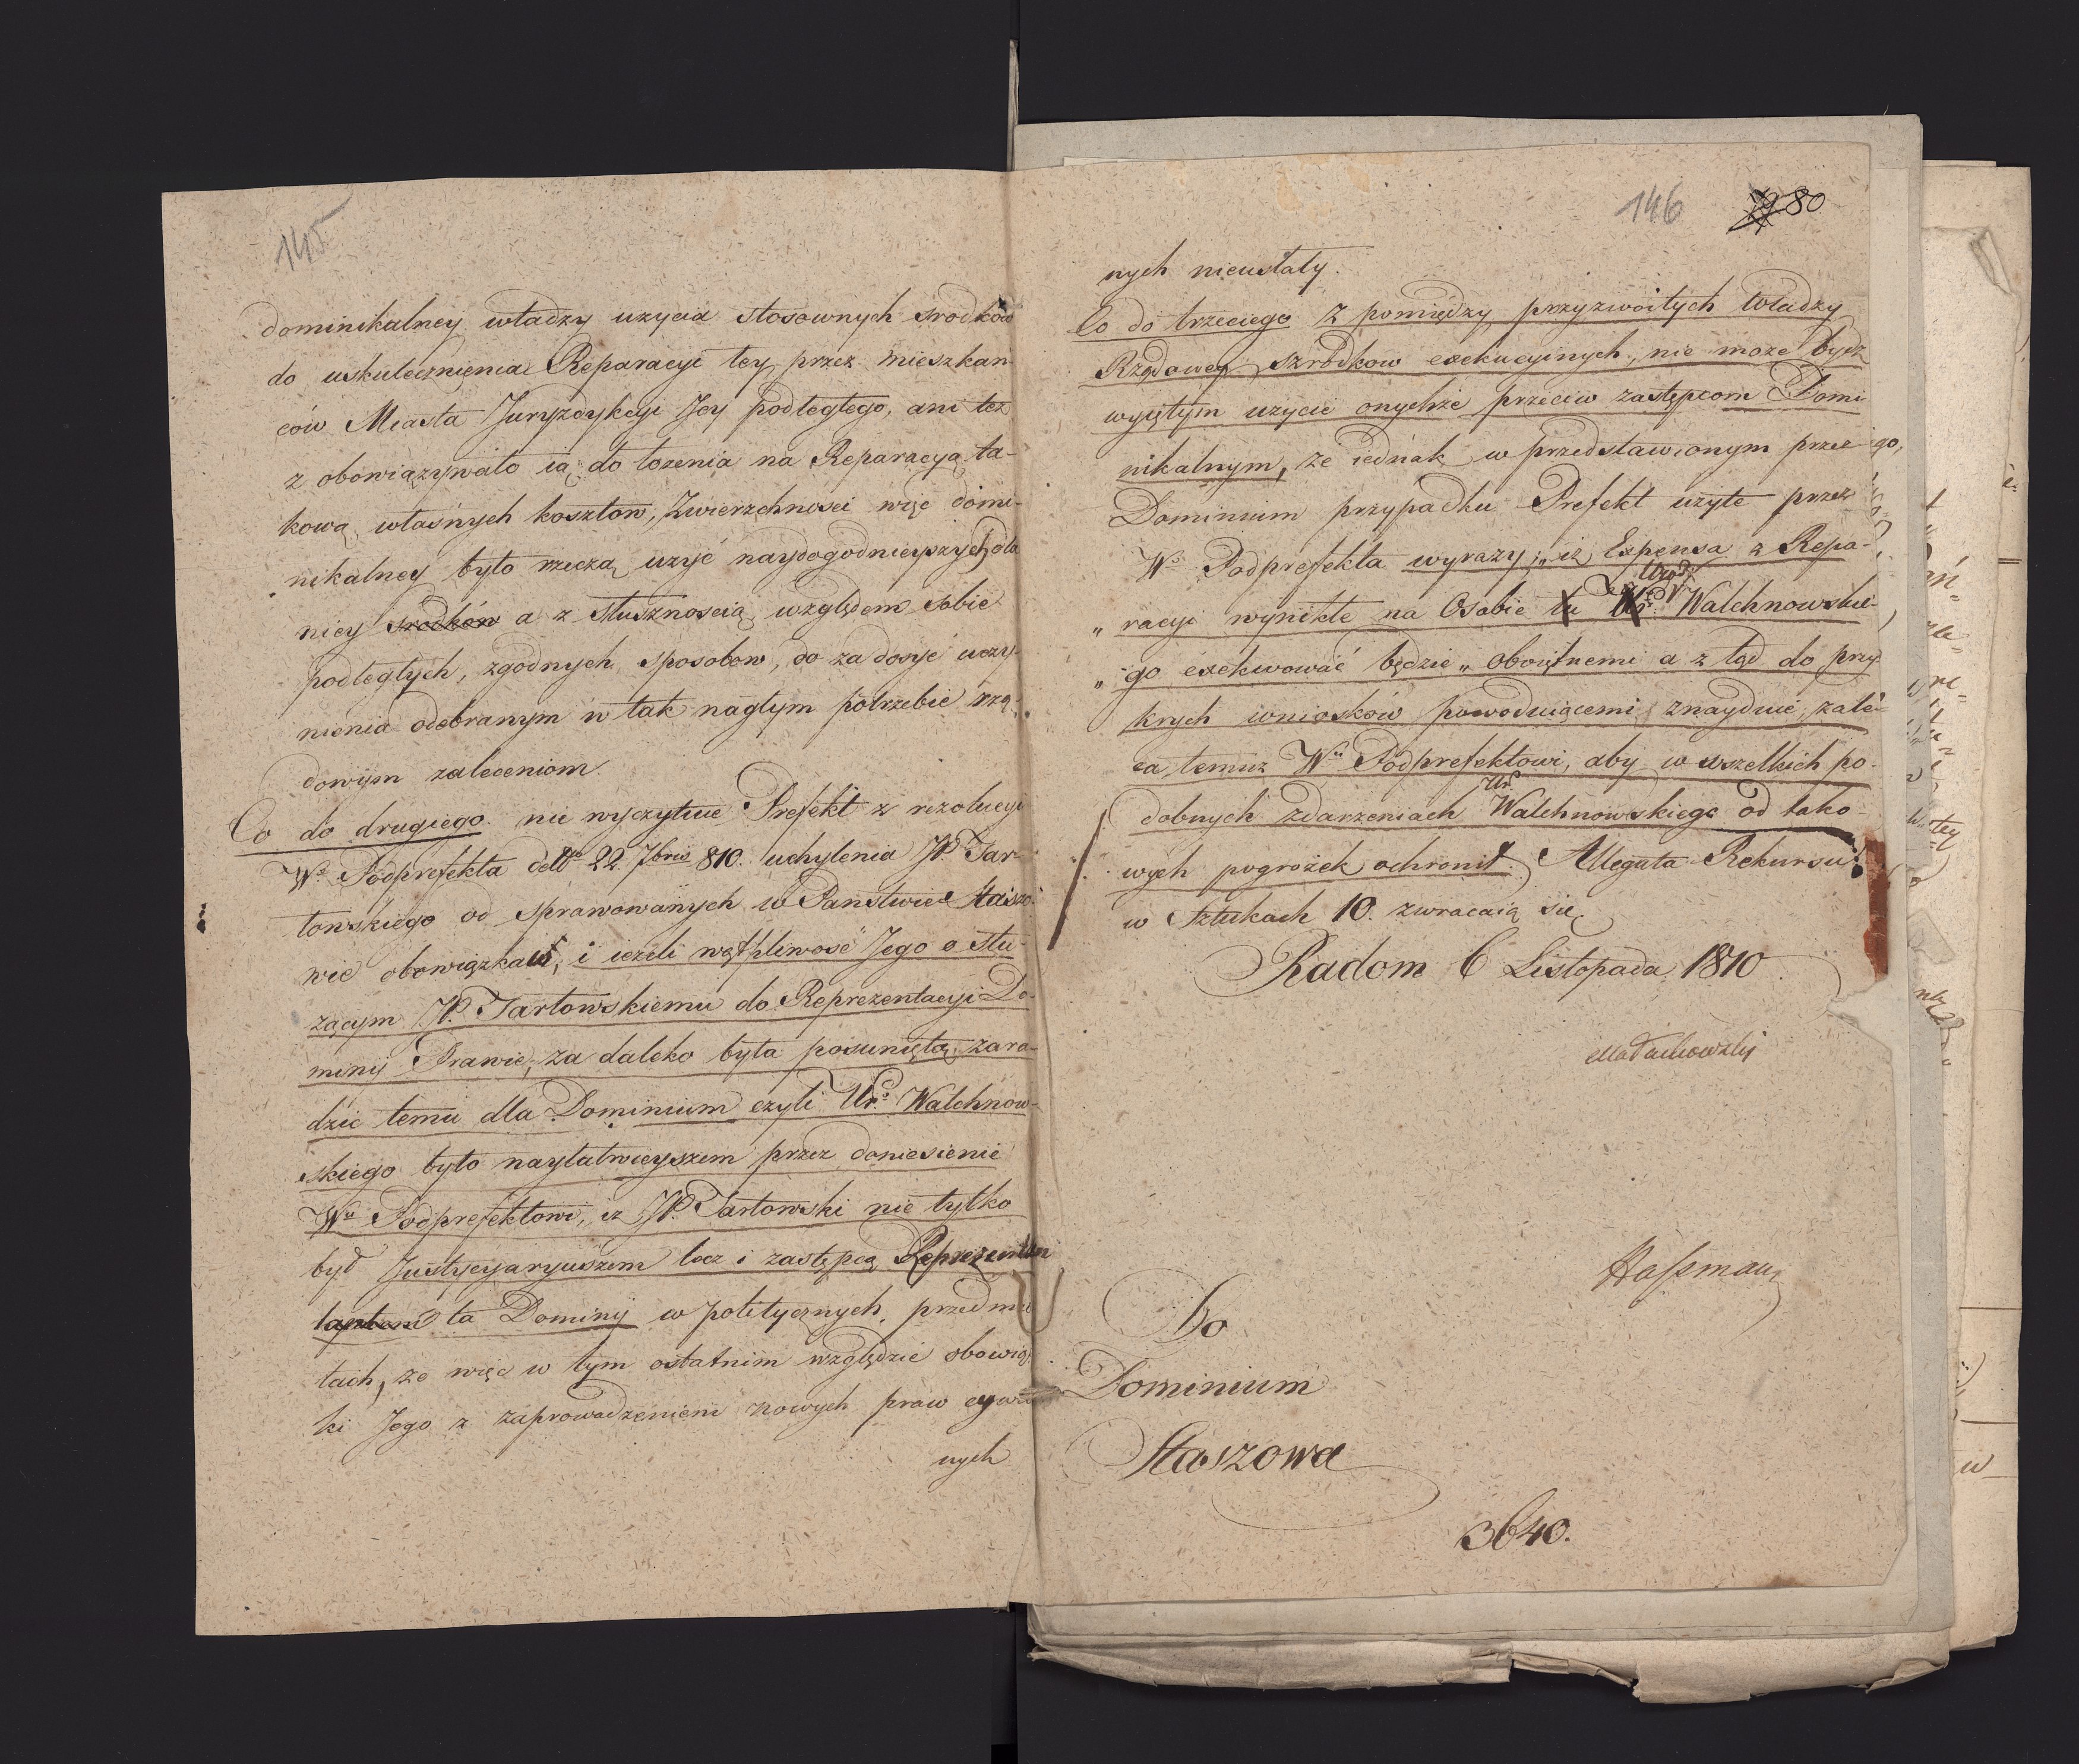 145
dominikalney władzy uzycia stosownych srodkow
do uskutecznięnia Reparacyi tey przez mieszkań-
ców Miasta Juryzdykcyi Jey podległego, ani tez
z obowiązywało ią do łozenia na Reparacyą ta-
kową własnych kosztow, Zwierzchnosci więc domi-
nikalney było rzeczą uzyć naydogodnieyszych dla
niey srodków a z słusznoscią względem sobie
podległych, zgodnych sposobow, do zadosyć uczy-
nienia odebranym w tak nagłym potrzebie rzą-
dowym zaleceniom.
Co do drugiego nie wyczytuie Prefekt z rezolucyi
Wo Podprefekta ddto 22 7bris 810. uchylenia JP. Tar-
łowskiego od sprawowanych w Panstwie Staszo-
wie obowiązkow, i iezeli wątpliwosć Jego o słu-
zącym JP. Tarłowskiemu do Reprezentacyi Do-
minij Prawie, za daleko była posuniętą, zara-
dzic temu dla Dominium czyli Uro Walchnow-
skiego było nayłatwieyszem przez doniesienie
Wu Podprefektowi, iz JP. Tarłowski nie tylko
był Justycyaryuszem lecz i zastępcą Reprezentan
tantem ta Dominij w politycznych przedmio
tach, ze więc w tym ostatnim względzie obowiąz
ki Jego z zaprowadzeniem nowych praw cywil
nych
146 79 80
nych nieustały.
Co do trzeciego z pomiędzy przyzwoitych władzy
Rządowey szrodkow exekucyinych, nie moze bydz
wyiętym uzycie onychże przeciw zastępcom Domi
nikalnym, ze iednak w przedstawionym przez
Dominium przypadku Prefekt uzyte przez
Wo Podprefekta wyrazy; „iz Expensa z Repa-
„racyi wynikłe na Osobie tu Uro Walchnowskie-
„go exekwować będzie„ oboiętnemi a z tąd do przy
krych wniosków powoduiącemi znayduie, zale-
ca temuz Wu Podprefektowi, aby w wszelkich po-
Ur.
dobnych zdarzeniach Walchnowskiego od tako-
wych pogrożek ochronił. Allegata Rekursu
w Sztukach 10. zwracaią się
Radom 6 Listopada 1810
Małachowski
Hassmann
Do
Dominium
Staszowa
3640.